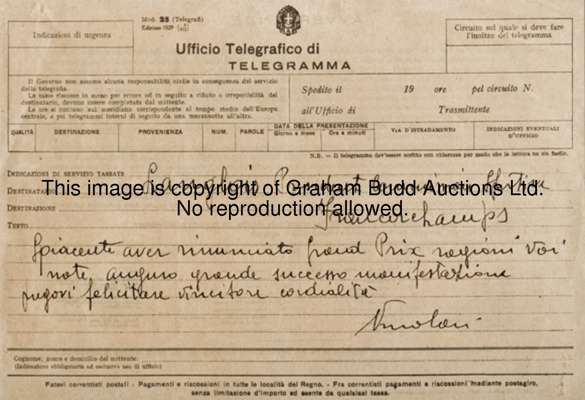 Mod. 25 (Telegrafi)
Edizione 1929
Indicazioni di urgenza
Circuito sul quale si deve fare
l'inoltro del telegramma
Ufficio Telegrafico di
TELEGRAMMA
Il Governo non assume alcuna responsabilità civile in conseguenza del servizio
della telegrafia.
Le tasse riscosse in meno per errore od in seguito a rifiuto o irreperibilità del
destinatario, devono essere completate dal mittente.
Le ore si contano sul meridiano corrispondente al tempo medio dell'Europa
centrale, e pei telegrammi interni di seguito da una mezzanotte all'altra.
Spedito il 19 ore pel circuito N.
all'Ufficio di Trasmittente
QUALITÀ DESTINAZIONE PROVENIENZA NUM. PAROLE DATA DELLA PRESENTAZIONE Giorno e mese Ora e minuti VIA D'ISTRADAMENTO INDICAZIONI EVENTUALI D'UFFICIO
N.B. - Il telegramma dev'essere scritto con chiarezza per modo che la lettura ne sia facile.
INDICAZIONI DI SERVIZIO TASSATE
DESTINAZIONE Francorchamps
This image is copyright of Graham Budd Auctions Ltd.
No reproduction allowed.
TESTO
Spiacente aver rinunciato Grand Prix ragioni voi
note, auguro grande successo manifestazione
pregovi felicitare vincitore cordialità
Nuvolari
Cognome, nome e domicilio del mittente:
(Indicazione obbligatoria ad esclusivo uso di ufficio)
Fatevi correntisti postali - Pagamenti e riscossioni in tutte le località del Regno. - Fra correntisti pagamenti e riscossioni mediante postagiro,
senza limitazione d'importo ed esente da qualsiasi tassa.